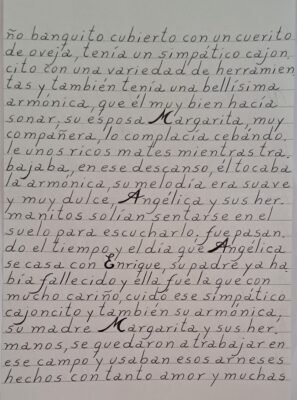 ño banquito cubierto con un cuerito
de oveja, tenía un simpático cajon,
cito con una variedad de herramien
tas y también tenía una bellísima
armónica, que él muy bien hacía
sonar, su esposa Margarita, muy
compañera, lo complacía cebándo,
le unos ricos mates mientras tra,
bajaba, en ese descanso, él tocaba
la armónica, su melodía era suave
y muy dulce, Angélica y sus her,
manitos solían sentarse en el
suelo para escucharlo, fue pasan,
do el tiempo y el día que Angélica
se casa con Enrique, su padre ya ha
bía fallecido y ella fue la que con
mucho cariño, cuido ese simpático
cajoncito y también su armónica,
su madre Margarita y sus her,
manos, se quedaron a trabajar en
ese campo y usaban esos arneses
hechos con tanto amor y muchas